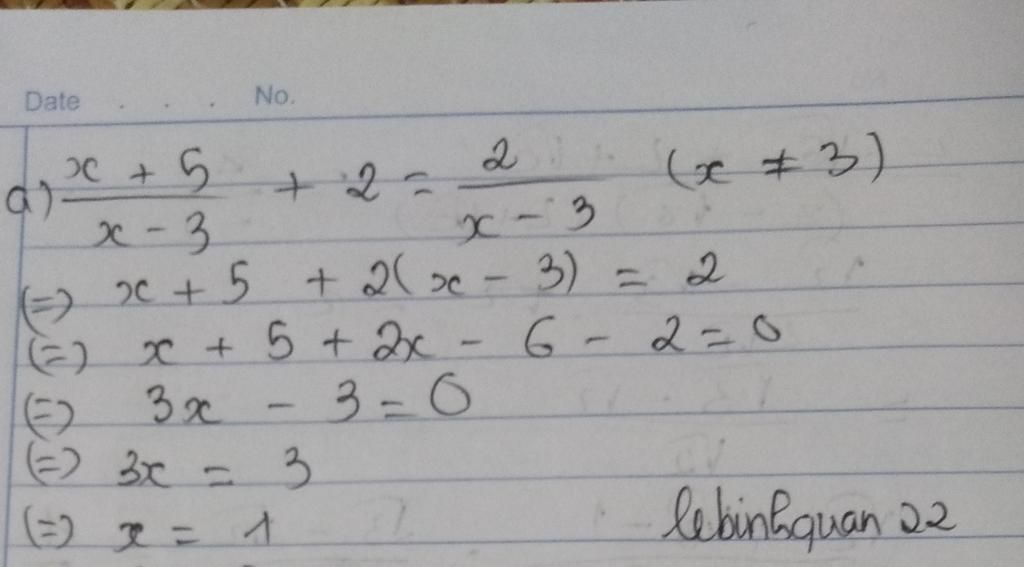 Date . . . No.
a) x + 5 / x - 3 + 2 = 2 / x - 3 (x ≠ 3)
(=) x + 5 + 2(x - 3) = 2
(=) x + 5 + 2x - 6 - 2 = 0
(=) 3x - 3 = 0
(=) 3x = 3
(=) x = 1 lebinhquan 22